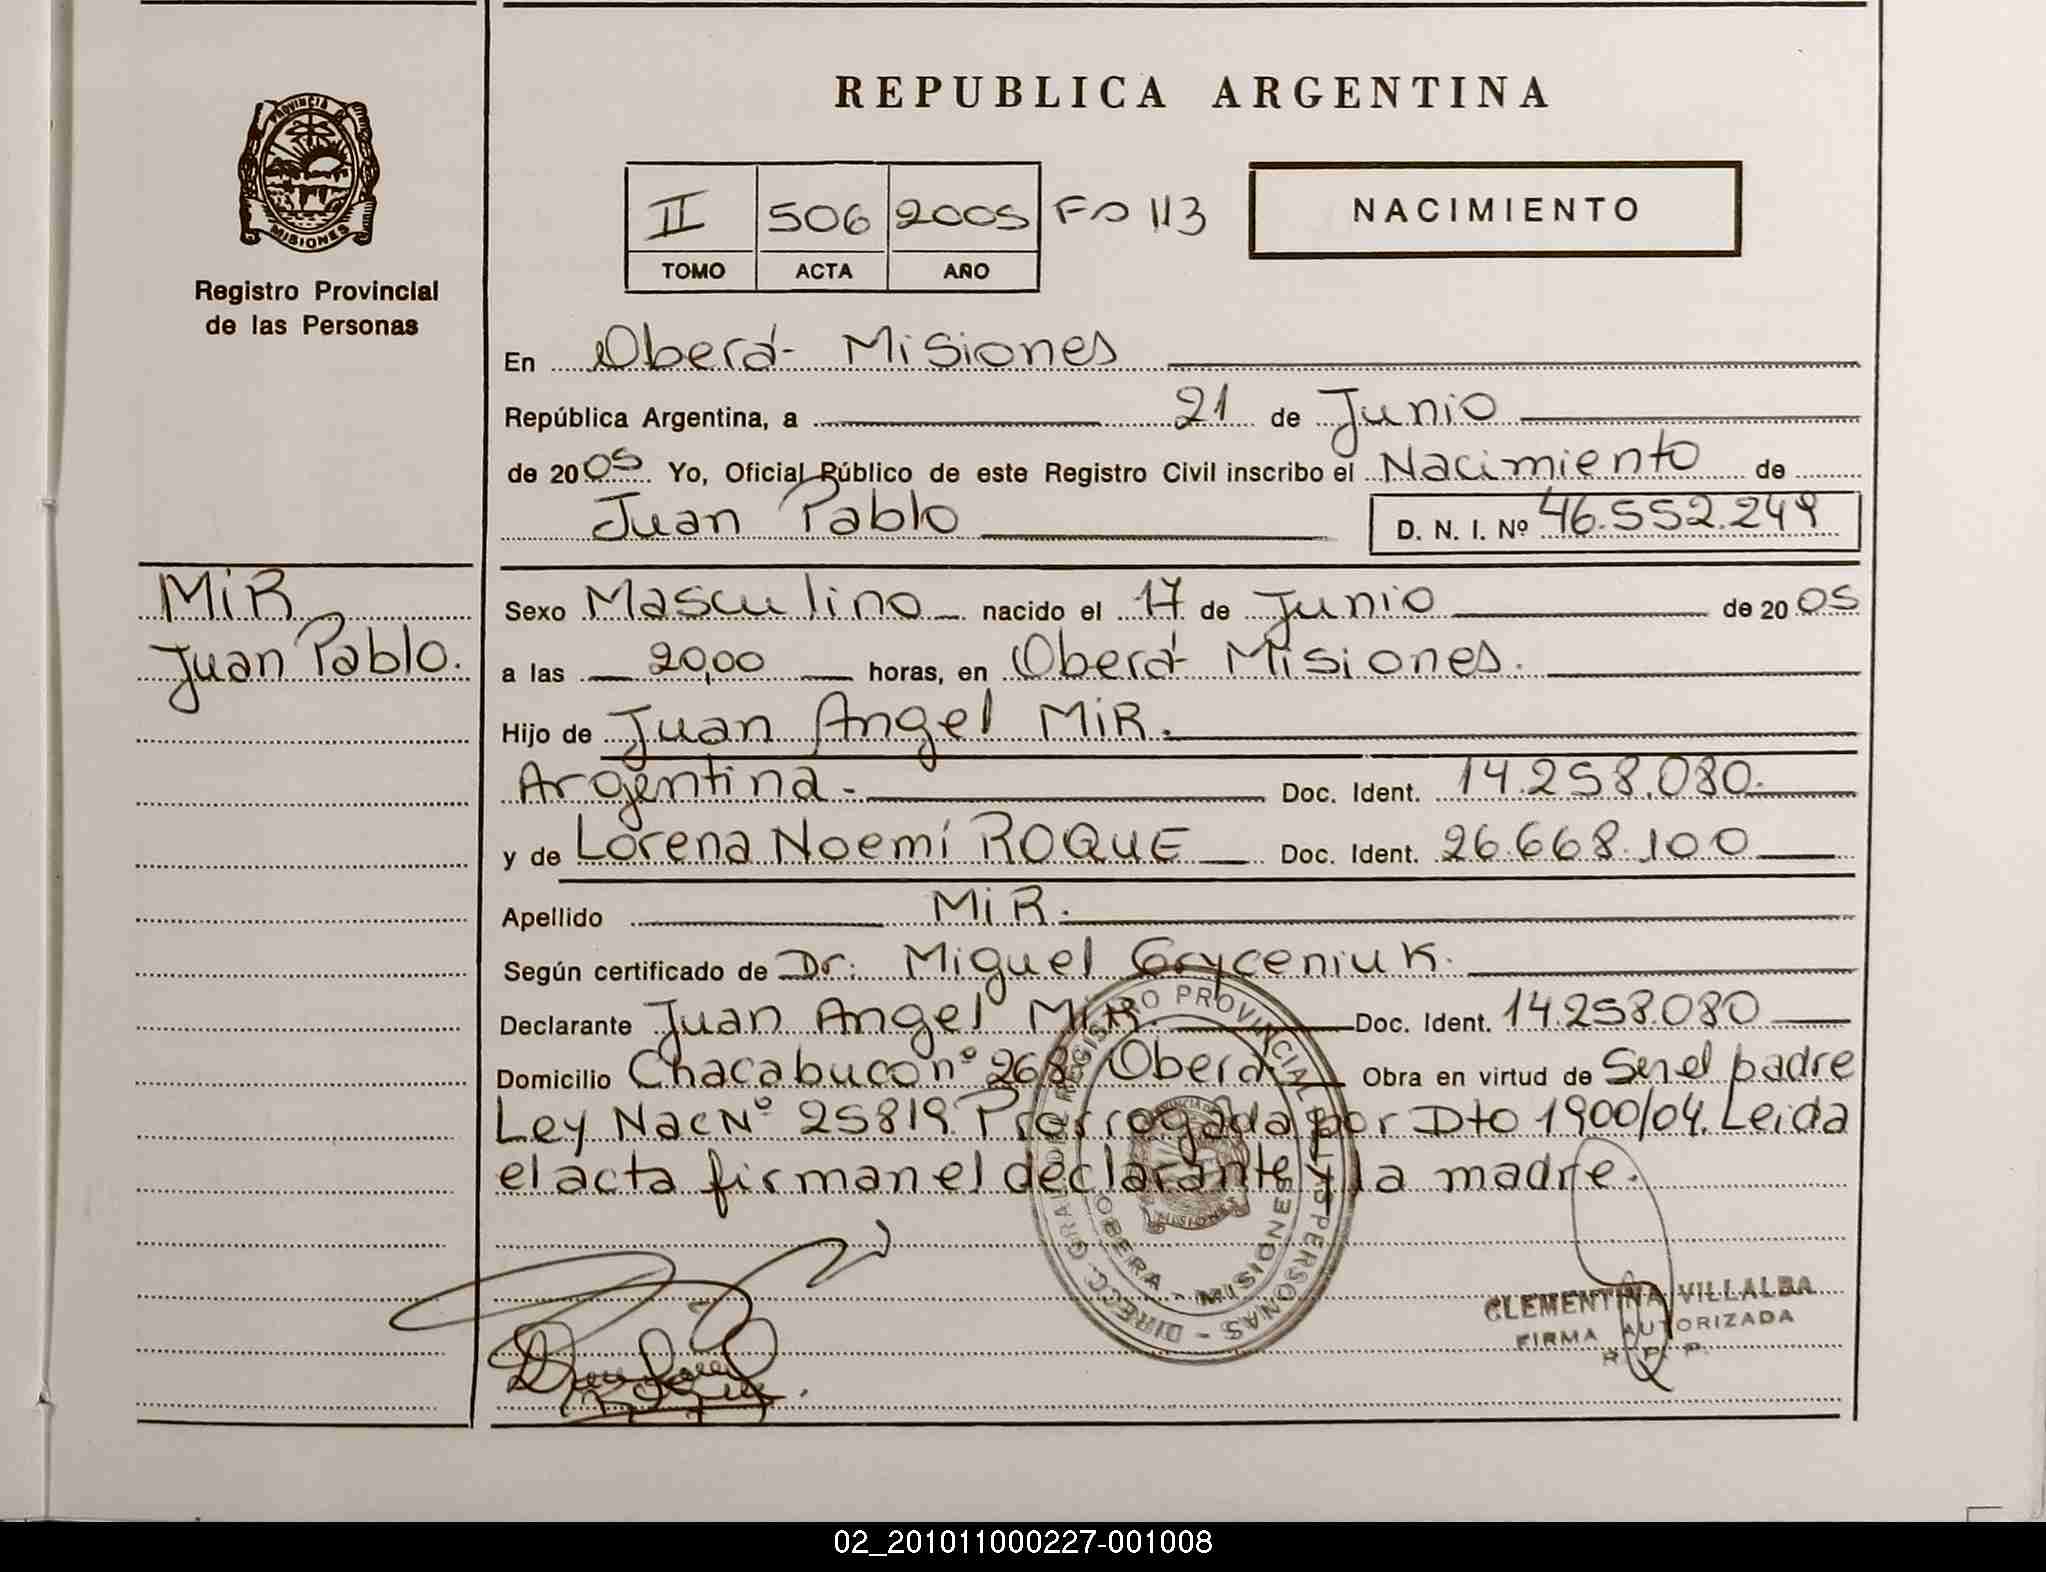 REPUBLICA ARGENTINA
PROVINCIA
MISIONES
Registro Provincial
de las Personas
II 506 2005 Fo 113
TOMO ACTA AÑO
NACIMIENTO
En Oberá - Misiones
República Argentina, a 21 de Junio
de 2005 Yo, Oficial Público de este Registro Civil inscribo el Nacimiento de
Juan Pablo D. N. I. Nº 46.552.249
MiR
Juan Pablo.
Sexo Masculino nacido el 17 de Junio de 2005
a las 20,00 horas, en Oberá - Misiones.
Hijo de Juan Angel MiR.
Argentina - Doc. Ident. 14.258.080.
y de Lorena Noemí ROQUE Doc. Ident. 26.668.100
Apellido MiR.
Según certificado de Dr. Miguel Gryceniuk.
Declarante Juan Angel MiR. Doc. Ident. 14.258.080
Domicilio Chacabuco nº 268 Oberá Obra en virtud de Ser el padre
Ley Nac Nº 25819. Prorrogada por Dto 1900/04. Leida
el acta firman el declarante y la madre.
DIRECC. GRAL. DEL REGISTRO PROVINCIAL DE LAS PERSONAS -
OBERA - MISIONES
MISIONES
CLEMENTINA VILLALBA
FIRMA AUTORIZADA
R. P. P.
02_201011000227-001008